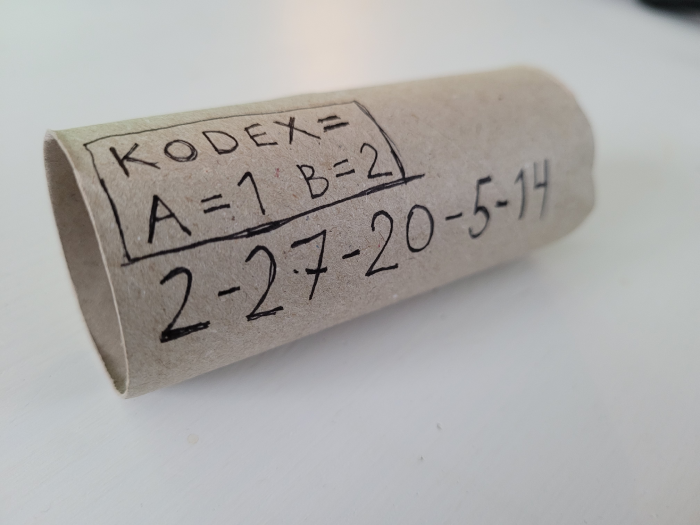 KODEX=
A=1 B=2
2-27-20-5-14